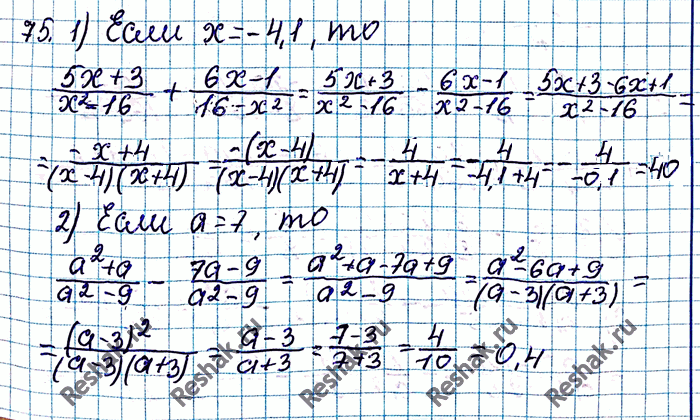 75. 1) Если x = -4,1, то
(5x+3)/(x²-16) + (6x-1)/(16-x²) = (5x+3)/(x²-16) - (6x-1)/(x²-16) = (5x+3-6x+1)/(x²-16) =
= (-x+4)/((x-4)(x+4)) = (-(x-4))/((x-4)(x+4)) = -4/(x+4) = -4/(-4,1+4) = -4/(-0,1) = 40
2) Если a = 7, то
(a²+a)/(a²-9) - (7a-9)/(a²-9) = (a²+a-7a+9)/(a²-9) = (a²-6a+9)/((a-3)(a+3)) =
= (a-3)²/((a-3)(a+3)) = (a-3)/(a+3) = (7-3)/(7+3) = 4/10 = 0,4
Reshak.ru Reshak.ru Reshak.ru Reshak.ru Reshak.ru